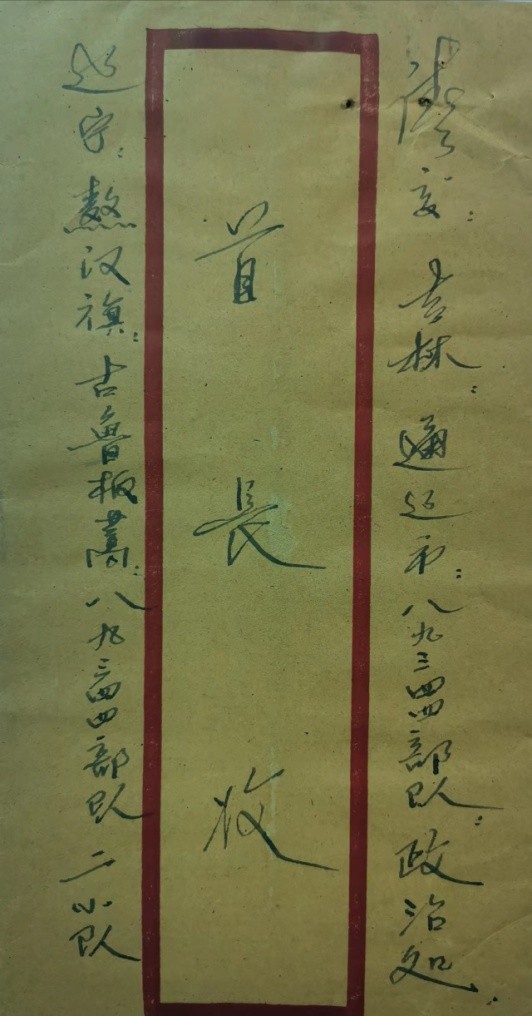 寄交：吉林：通辽市：八九三四四部队：政治处：
首长收
辽宁：敖汉旗：古鲁板蒿：八九三四四部队二小队